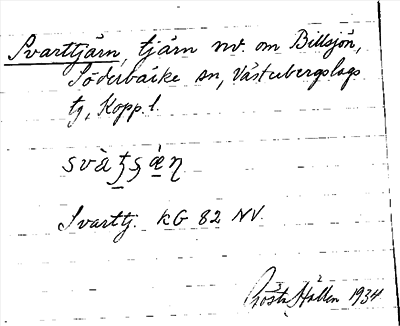 Svarttjärn, tjärn nv. om Billsjön,
Söderbärke sn, Västerbergslags
tg, Kopp. l.
Svarttj. KG 82 NV.
Gösta Hållen 1934